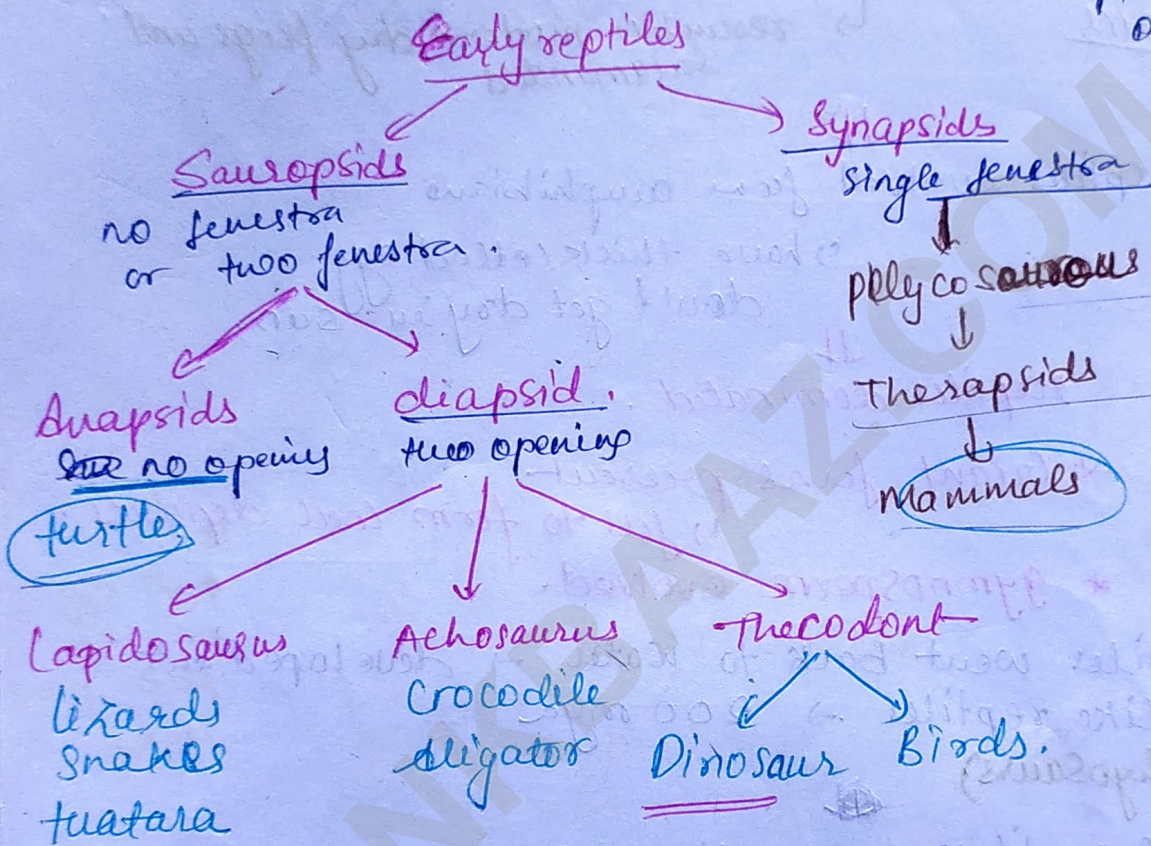 Early reptiles
Sauropsids
no fenestra
or two fenestra.
Synapsids
single fenestra
pelycosaurous
Therapsids
Mammals
Anapsids
no opening
turtle
diapsid.
two opening
Lapidosaurus
lizards
snakes
tuatara
Achosaurus
Crocodile
alligator
Thecodont
Dinosaur
Birds.